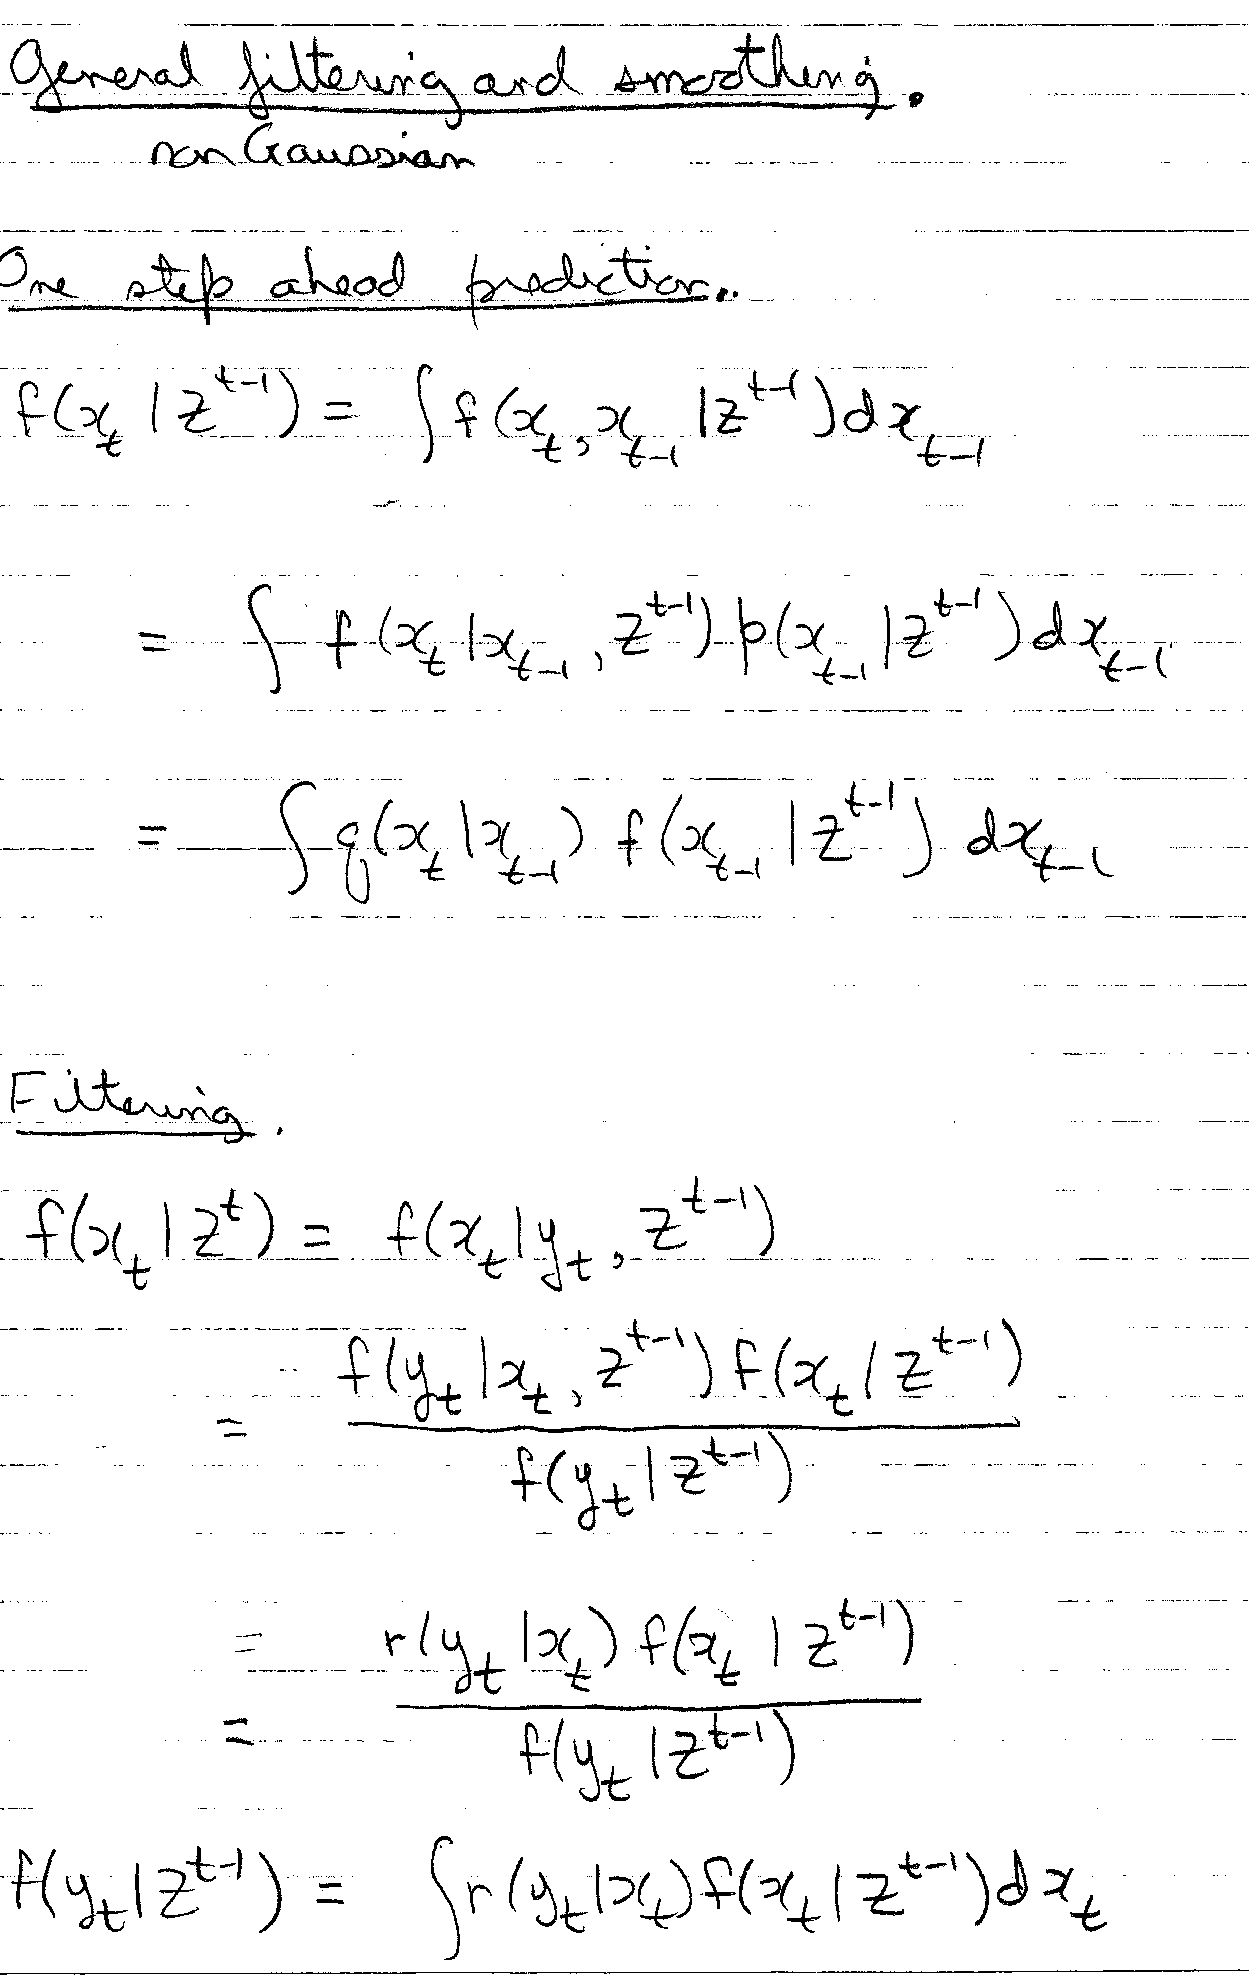 General filtering and smoothing.
non Gaussian
One step ahead prediction..
f(x_t | z^{t-1}) = ∫ f(x_t, x_{t-1} | z^{t-1}) dx_{t-1}
= ∫ f(x_t | x_{t-1}, z^{t-1}) p(x_{t-1} | z^{t-1}) dx_{t-1}
= ∫ q(x_t | x_{t-1}) f(x_{t-1} | z^{t-1}) dx_{t-1}
Filtering.
f(x_t | z^t) = f(x_t | y_t, z^{t-1})
f(y_t | x_t, z^{t-1}) f(x_t | z^{t-1})
=
f(y_t | z^{t-1})
= r(y_t | x_t) f(x_t | z^{t-1})
=
f(y_t | z^{t-1})
f(y_t | z^{t-1}) = ∫ r(y_t | x_t) f(x_t | z^{t-1}) dx_t